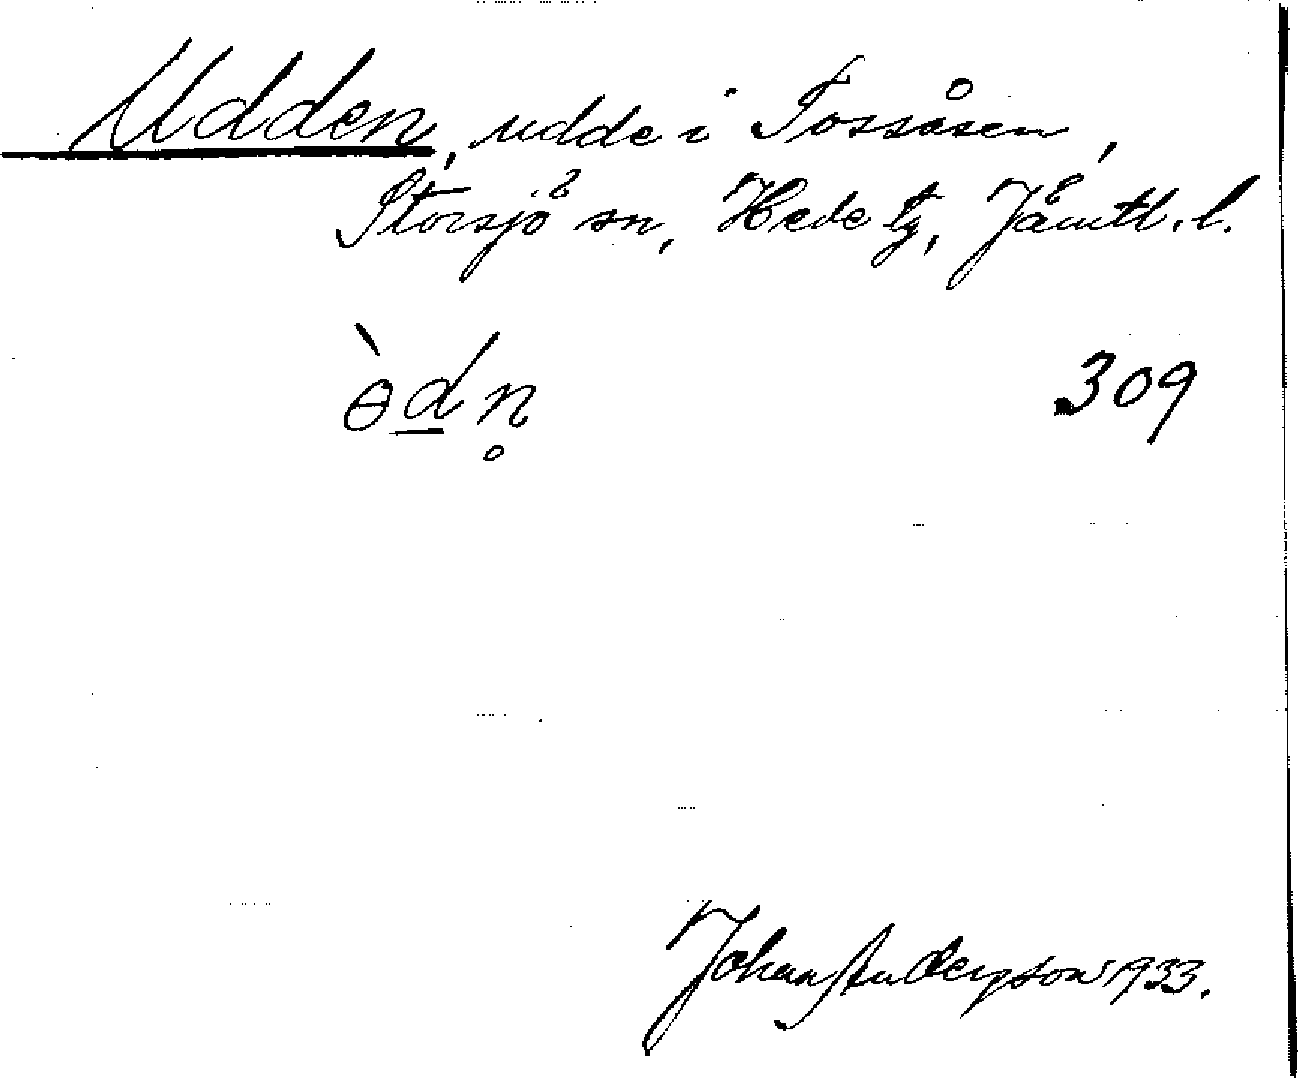 Udden, udde i Tossåsen,
Storsjö sn, Hede tg, Jämtl. l.
ɵ̀d̲n̥ 309
Johan Anderson 1933.